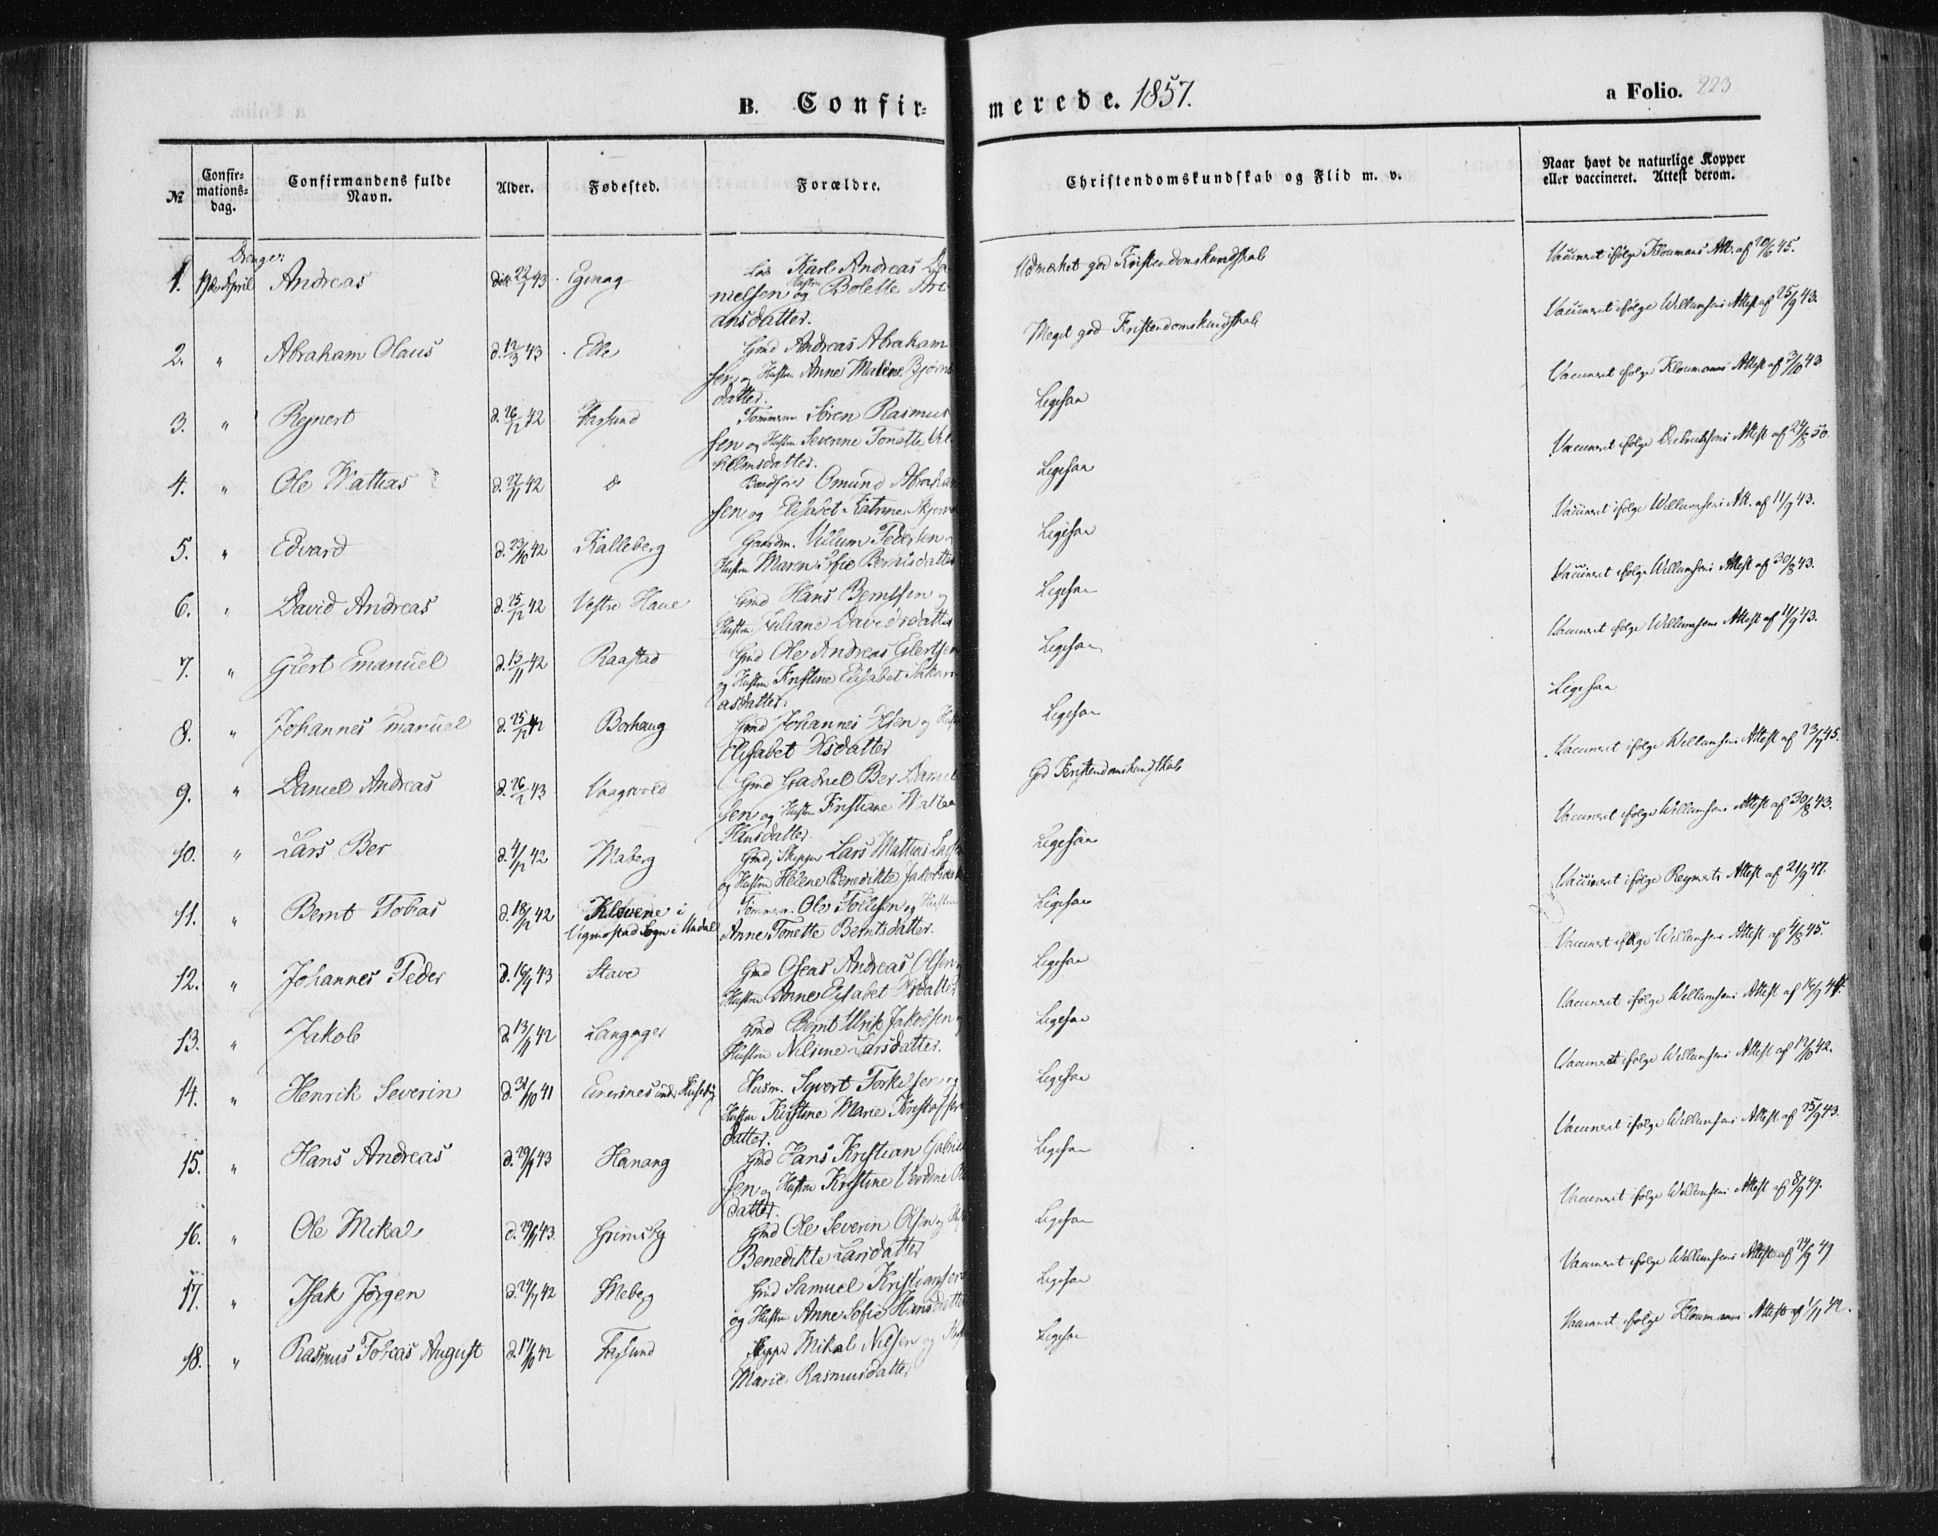 B. Confir-
merede. 1857.
a Folio. 223
№
Confir-
mations-
dag.
Confirmandens fulde
Navn.
Alder.
Fødested.
Forældre.
Christendomskundskab og Flid m. v.
Naar havt de naturlige Kopper
eller vaccineret. Attest derom.
Drenge:
1. April Andreas 22/1 43 Karl Andreas Da
nielsen og Bolette
ansdatter.
Udmærket god Kristendomskundskab
Vaccineret ifølge Kloumans Att. af 20/6 45.
2. " Abraham Olaus d. 12/3 43 Edle Gmd Andreas Abraham
sen og Hustru Anne Malene Bjørns
datter.
Meget god Kristendomskundskab
Vaccineret ifølge Willumsens Attest af 25/9 43.
3. " Rejnert d. 26/12 42 Farsund Tømmerm. Søren Rasmus
sen og Hustru Severine Tonette Vil
helmsdatter.
Ligesaa
Vaccineret ifølge Kloumanns Attest af 3/10 43
4. " Ole Mathias d. 27/11 42 do Omund Abraham
sen og Elisabet Katrine
Ligesaa
Vaccineret ifølge Attest af 24/8 50.
5. " Edvard d. 23/10 42 Kalleberg Gaardm. Villum Pedersen o
Hustru Maren Sofie Berntsdatter
Ligesaa
Vaccineret ifølge Willumsens Att. af 11/9 43.
6. " David Andreas d. 25/12 42 Vestre Haue Gmd Hans Berntsen og
Hustru Juliane Davidsdatter
Ligesaa
Vaccineret ifølge Willumsens Attest af 30/8 43.
7. " Giert Emanuel d. 13/11 42 Raastad Gmd Ole Andreas Eilertsen
og Hustru Kristine Elisabet Sakari
asdatter.
Ligesaa
Vaccineret ifølge Willumsens Attest af 11/9 43.
8. " Johannes Emanuel d. 25/12 42 Borhaug Gmd Johannes Olsen og
Elisabet Olsdatter
Ligesaa
Ligesaa
9. " Daniel Andreas d. 26/1 43 Vaagsvold Gmd Gabriel Ber Daniel
sen og Hustru Kristiane
Hansdatter.
God Kristendomskundskab
Vaccineret ifølge Willumsens Attest af 23/9 45.
10. " Lars Ber d. 4/12 42 Maberg Gmd, Skipper Lars Mathias
og Hustru Helene Benedikte
Ligesaa
Vaccineret ifølge Willumsens Attest af 30/8 43.
11. " Bernt Tobias d. 18/12 42 Klevene i
Vigmostad Sogn i Undal
Tømmerm. Ole Tollisen og Hustru
Anne Tonette Berntsdatter.
Ligesaa
Vaccineret ifølge Reymerts Attest af 21/9 47.
12. " Johannes Peder d. 16/1 43 Stave Gmd Oseas Andreas Olsen
Hustru Anne Elisabet
Ligesaa
Vaccineret ifølge Willumsens Attest af 1/8 45.
13. " Jakob d. 13/11 42 Langager Gmd Bernt Ulrik Jakobsen
Hustru Nilsine Larsdatter.
Ligesaa
Vaccineret ifølge Willumsens Attest af 16/9 44.
14. " Henrik Severin d. 31/10 41 under Huseby Husm. Syvert Torkelsen og
Hustru Kirstine Marie Kristoffers
datter.
Ligesaa
Vaccineret ifølge Willumsens Attest af 12/10 42.
15. " Hans Andreas d. 29/1 43 Hanang Gmd Hans Kristian Gabriel
sen og Hustru Kristine
datter.
Ligesaa
Vaccineret ifølge Willumsens Attest af 25/9 43.
16. " Ole Mikal d. 29/1 43. Grimsby Gmd Ole Severin Olsen og
Benedikte Larsdatter
Ligesaa
Vaccineret ifølge Willumsens Attest af 8/9 49.
17. " Isak Jørgen d. 24/7 42 Meberg Gmd Samuel Kristiansen
og Hustru Anne Sofie Hansdatter
Ligesaa
Vaccineret ifølge Willumsens Attest af 24/9 49
18. " Rasmus Tobias August d. 17/10 42 Farsund Skipper Mikal Nilsen og
Marie Rasmusdatter
Ligesaa
Vaccineret ifølge Kloumanns Attest af 1/11 42.